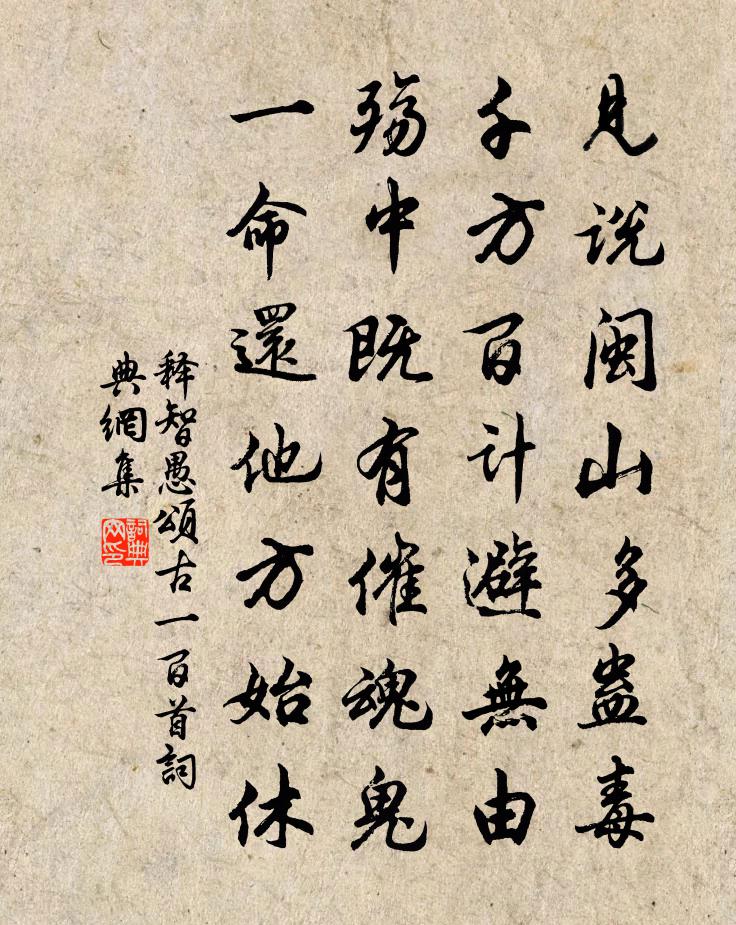 見説閩山多蠱毒
千方百计避無由
殇中既有催魂鬼
一命還他方始休
释智愚頌古一百首詞
典網集
詞典
网印